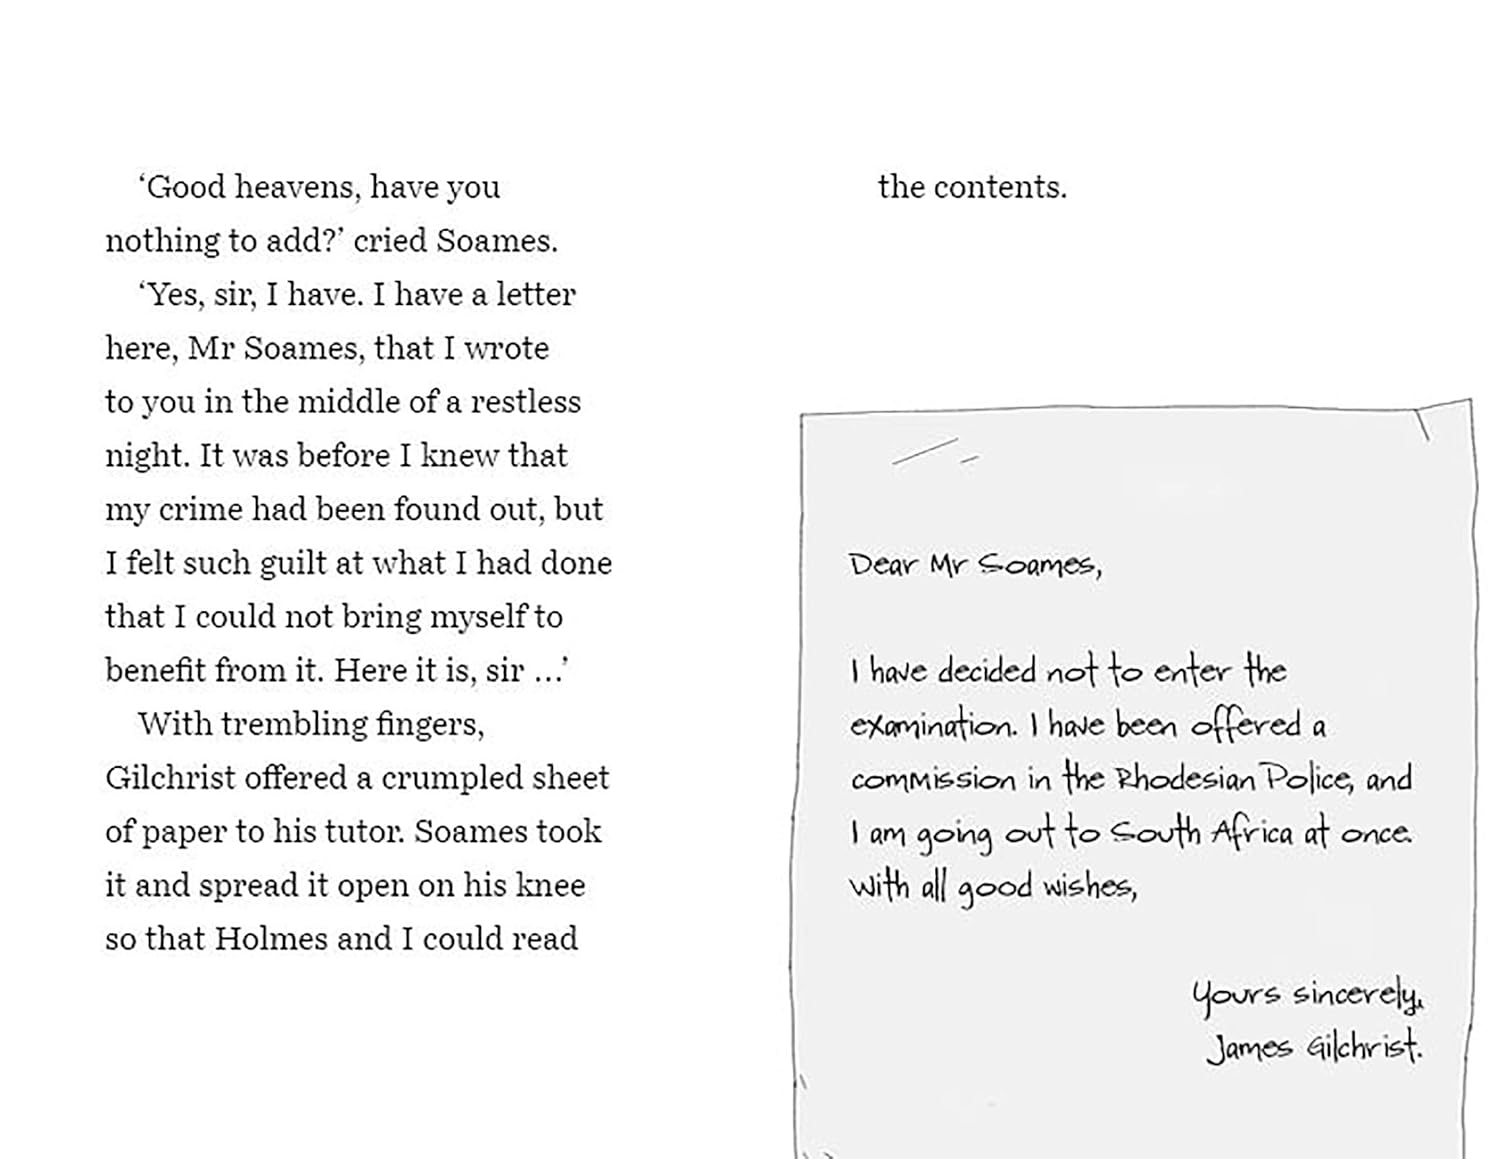 ‘Good heavens, have you
nothing to add?’ cried Soames.
‘Yes, sir, I have. I have a letter
here, Mr Soames, that I wrote
to you in the middle of a restless
night. It was before I knew that
my crime had been found out, but
I felt such guilt at what I had done
that I could not bring myself to
benefit from it. Here it is, sir …’
With trembling fingers,
Gilchrist offered a crumpled sheet
of paper to his tutor. Soames took
it and spread it open on his knee
so that Holmes and I could read
the contents.
Dear Mr Soames,
I have decided not to enter the
examination. I have been offered a
commission in the Rhodesian Police, and
I am going out to South Africa at once.
With all good wishes,
Yours sincerely,
James Gilchrist.